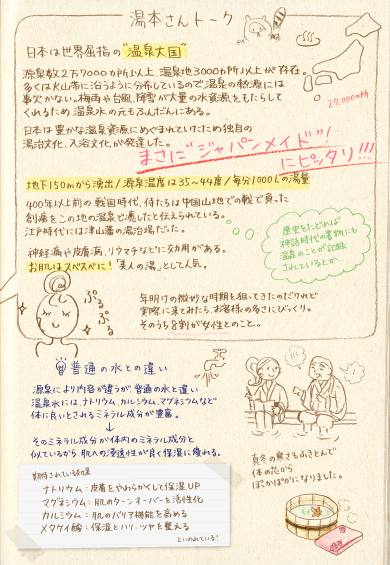 湯本さんトーク
日本は世界屈指の"温泉大国"
源泉数2万7000ヵ所以上、温泉地3000ヵ所以上が存在。
多くは火山帯に沿うように分布しているので温泉の熱源には
事欠かない。梅雨や台風、降雪が大量の水資源をもたらして
くれるため温泉水の元もふんだんにある。
27,000ヵ所
日本は豊かな温泉資源にめぐまれていたため独自の
湯治文化、入浴文化が発達した。
まさに"ジャパンメイド"!
にピッタリ!!!
地下150mから湧出/源泉温度は35〜44度/毎分1000Lの湯量
400年以上前の戦国時代、侍たちは中国山地での戦で負った
創痍をこの地の温泉で癒したと伝えられている。
江戸時代には津山藩の湯治場だった。
神経痛や皮膚病、リウマチなどに効用がある。
お肌はスベスベに!「美人の湯」として人気。
歴史をたどれば
神話時代の書物にも
温泉のことが記録
されているとか…
ぷる
ぷる
ぷる
年明けの微妙な時期を狙ってきたのだけれど
実際に来てみたらお客様の多さにびっくり。
そのうち8割が女性とのこと…。
普通の水との違い
源泉により内容が違うが、普通の水と違い
温泉水には、ナトリウム、カルシウム、マグネシウムなど
体に良いとされるミネラル成分が豊富。
↓
そのミネラル成分が体内のミネラル成分と
似ているから、肌への浸透性が良く保湿に優れる。
期待されている効果
ナトリウム:皮膚をやわらかくして保湿UP
マグネシウム:肌のターンオーバーを活性化
カルシウム:肌のバリア機能を高める
メタケイ酸:保湿とハリ・ツヤを整える
といわれている!
真冬の寒さもふきとんで
体の芯から
ぽかぽかになりました。